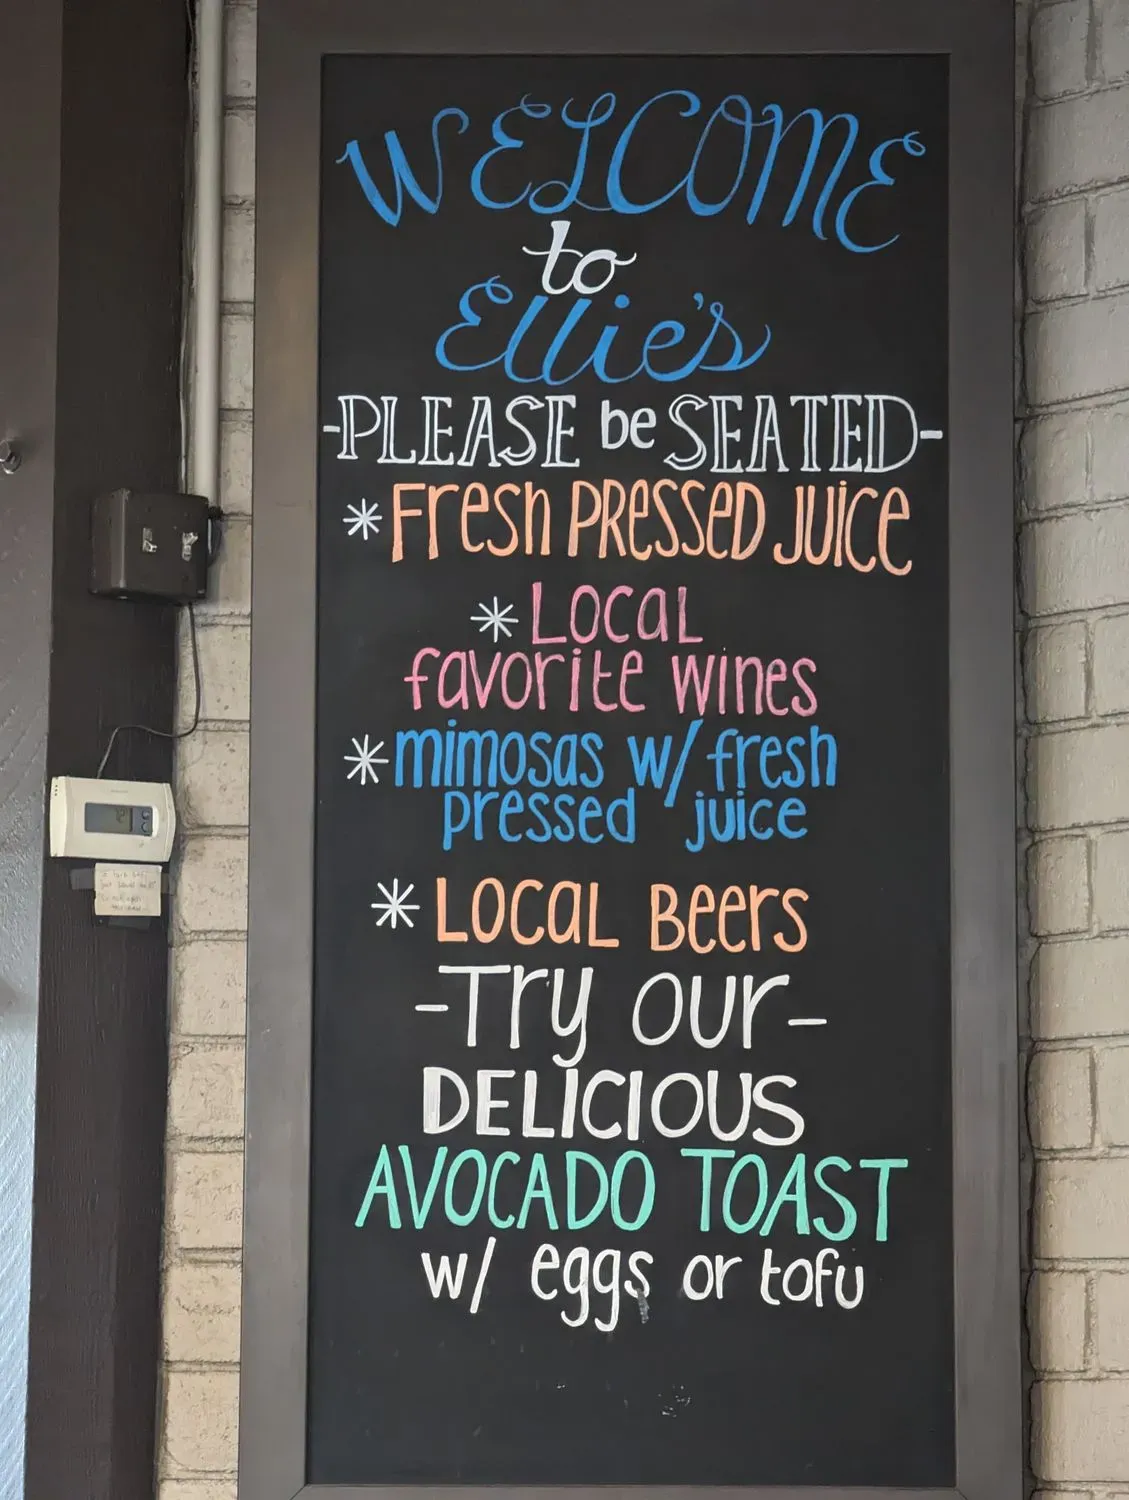 WELCOME
to
Ellie's
-PLEASE be SEATED-
* Fresh PRESSED JUICE
* LOCAL
favorite wines
* mimosas w/ fresh
pressed juice
* LOCAL BEERS
-Try our-
DELICIOUS
AVOCADO TOAST
w/ eggs or tofu